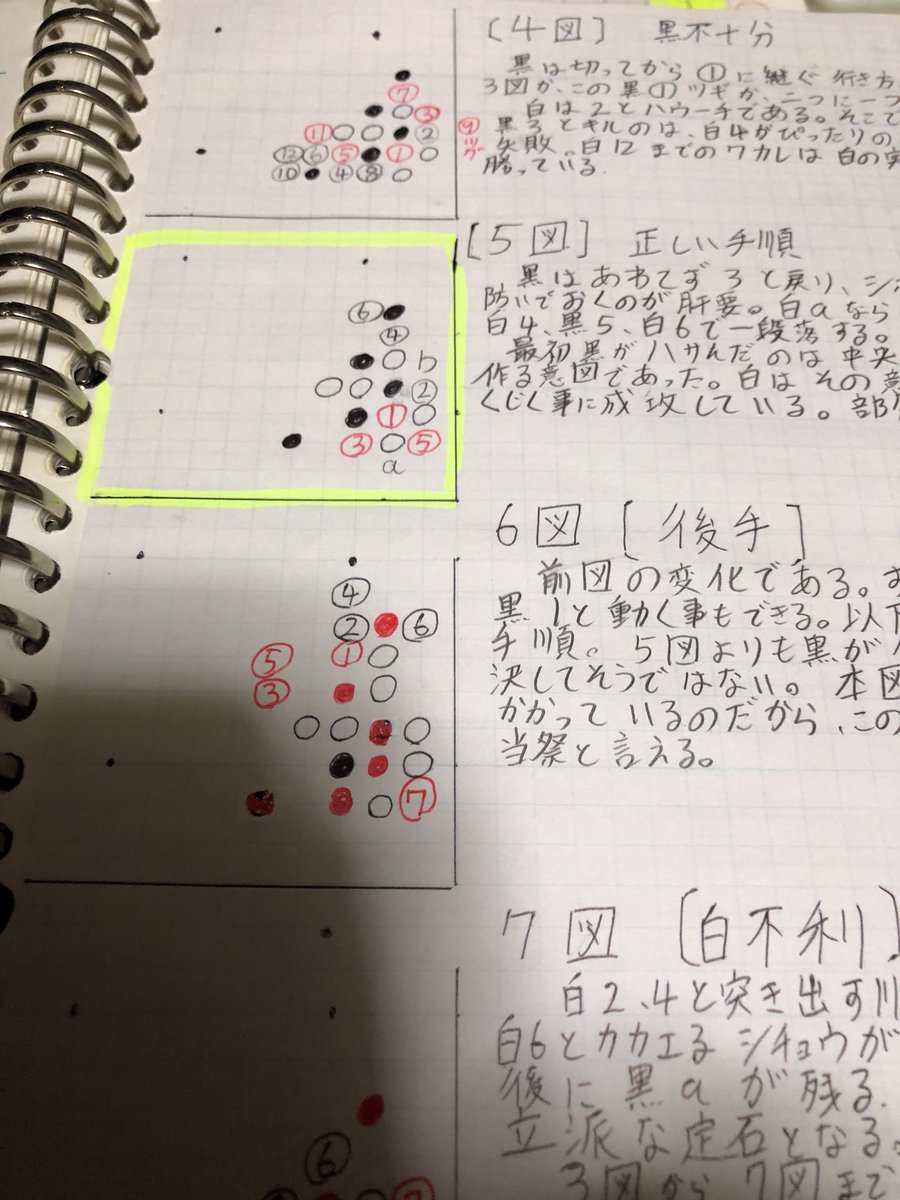 [4図] 黒不十分
黒は切ってから①に継ぐ行き方
3図か、この黒①ツギか、二つに一つ
白は2とハウ一手である。そこで
黒3とキルのは、白4がぴったりの
失敗。白12までのワカレは白の実
勝っている.
⑨ツグ
⑦
③
⑪ ②
⑫ ⑥ ⑤ ①
⑩ ④ ⑧
[5図] 正しい手順
黒はあわてず3と戻り、シ
防いでおくのが肝要。白aなら
白4、黒5、白6で一段落する。
最初黒がハサんだのは中央
作る意図であった。白はその意
くじく事に成攻している。部
⑥
④
b
②
①
③ ⑤
a
6図 [後手]
前図の変化である。
黒1と動く事もできる。以下
手順。5図よりも黒が
決してそうではない。本図
かかっているのだから、この
当祭と言える。
④
② ⑥
⑤ ①
③
⑦
7図 [白不利]
白2、4と突き出す
白6とカカエるシチョウが
後に黒aが残る.
立派な定石となる。
3図から7図まで
⑥